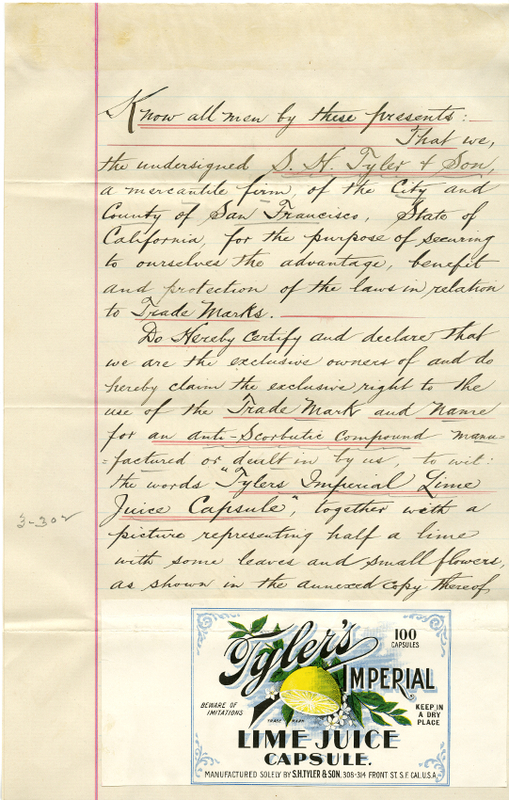 Know all men by these presents:
That we,
the undersigned S. H. Tyler & Son,
a mercantile firm, of the City and
County of San Francisco, State of
California, for the purpose of securing
to ourselves the advantage, benefit
and protection of the laws in relation
to Trade Marks.
Do Hereby certify and declare that
we are the exclusive owners of and do
hereby claim the exclusive right to the
use of the Trade Mark and Name
for an anti-Scorbutic Compound manu
=factured or dealt in by us, to wit:
the words "Tylers Imperial Lime
Juice Capsule", together with a
3-302
picture representing half a lime
with some leaves and small flowers,
as shown in the annexed copy thereof
Tyler's
100
CAPSULES
IMPERIAL
BEWARE OF
IMITATIONS
KEEP IN
A DRY
PLACE
TRADE MARK
LIME JUICE
CAPSULE.
MANUFACTURED SOLELY BY S.H.TYLER & SON, 308-314 FRONT ST. S.F. CAL. U.S.A